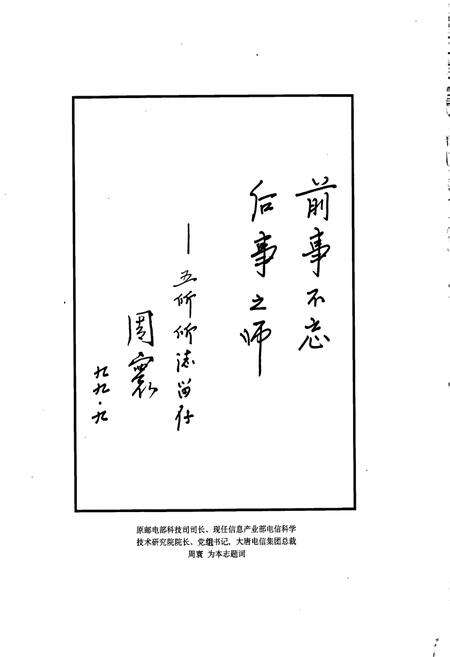 前事不忘
后事之师
——五所所志留存
周寰
九九·九
原邮电部科技司司长、现任信息产业部电信科学
技术研究院院长、党组书记、大唐电信集团总裁
周寰 为本志题词